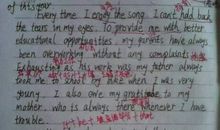 of this year.
Every time I enjoy the song, I can't hold back
the tears in my eyes. To provide me with better
educational opportunities, my parents have always
been overworking without any complaints.
Exhausting as his work was, my father always
sent me to school by bike when I was very
young. I also owe my gratitude to my
mother, who is always there whenever I have
trouble.